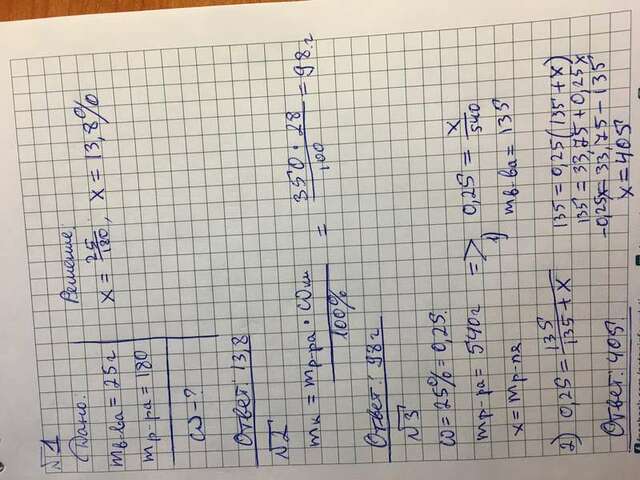 √1
Дано:
mв-ва = 25г
mр-ра = 180
ω - ?
Решение:
x = 25/180; x = 13,8%
Ответ: 13,8
√2
mк = mр-ра · ωки / 100% = 350 · 28 / 100 = 98г
Ответ: 98г
√3
ω = 25% = 0,25.
mр-ра = 540г
x = mр-ля
=> 1) 0,25 = x/540
mв-ва = 135
2) 0,25 = 135/135 + x
135 = 0,25(135 + x)
135 = 33,75 + 0,25x
-0,25x = 33,75 - 135
x = 405
Ответ: 405